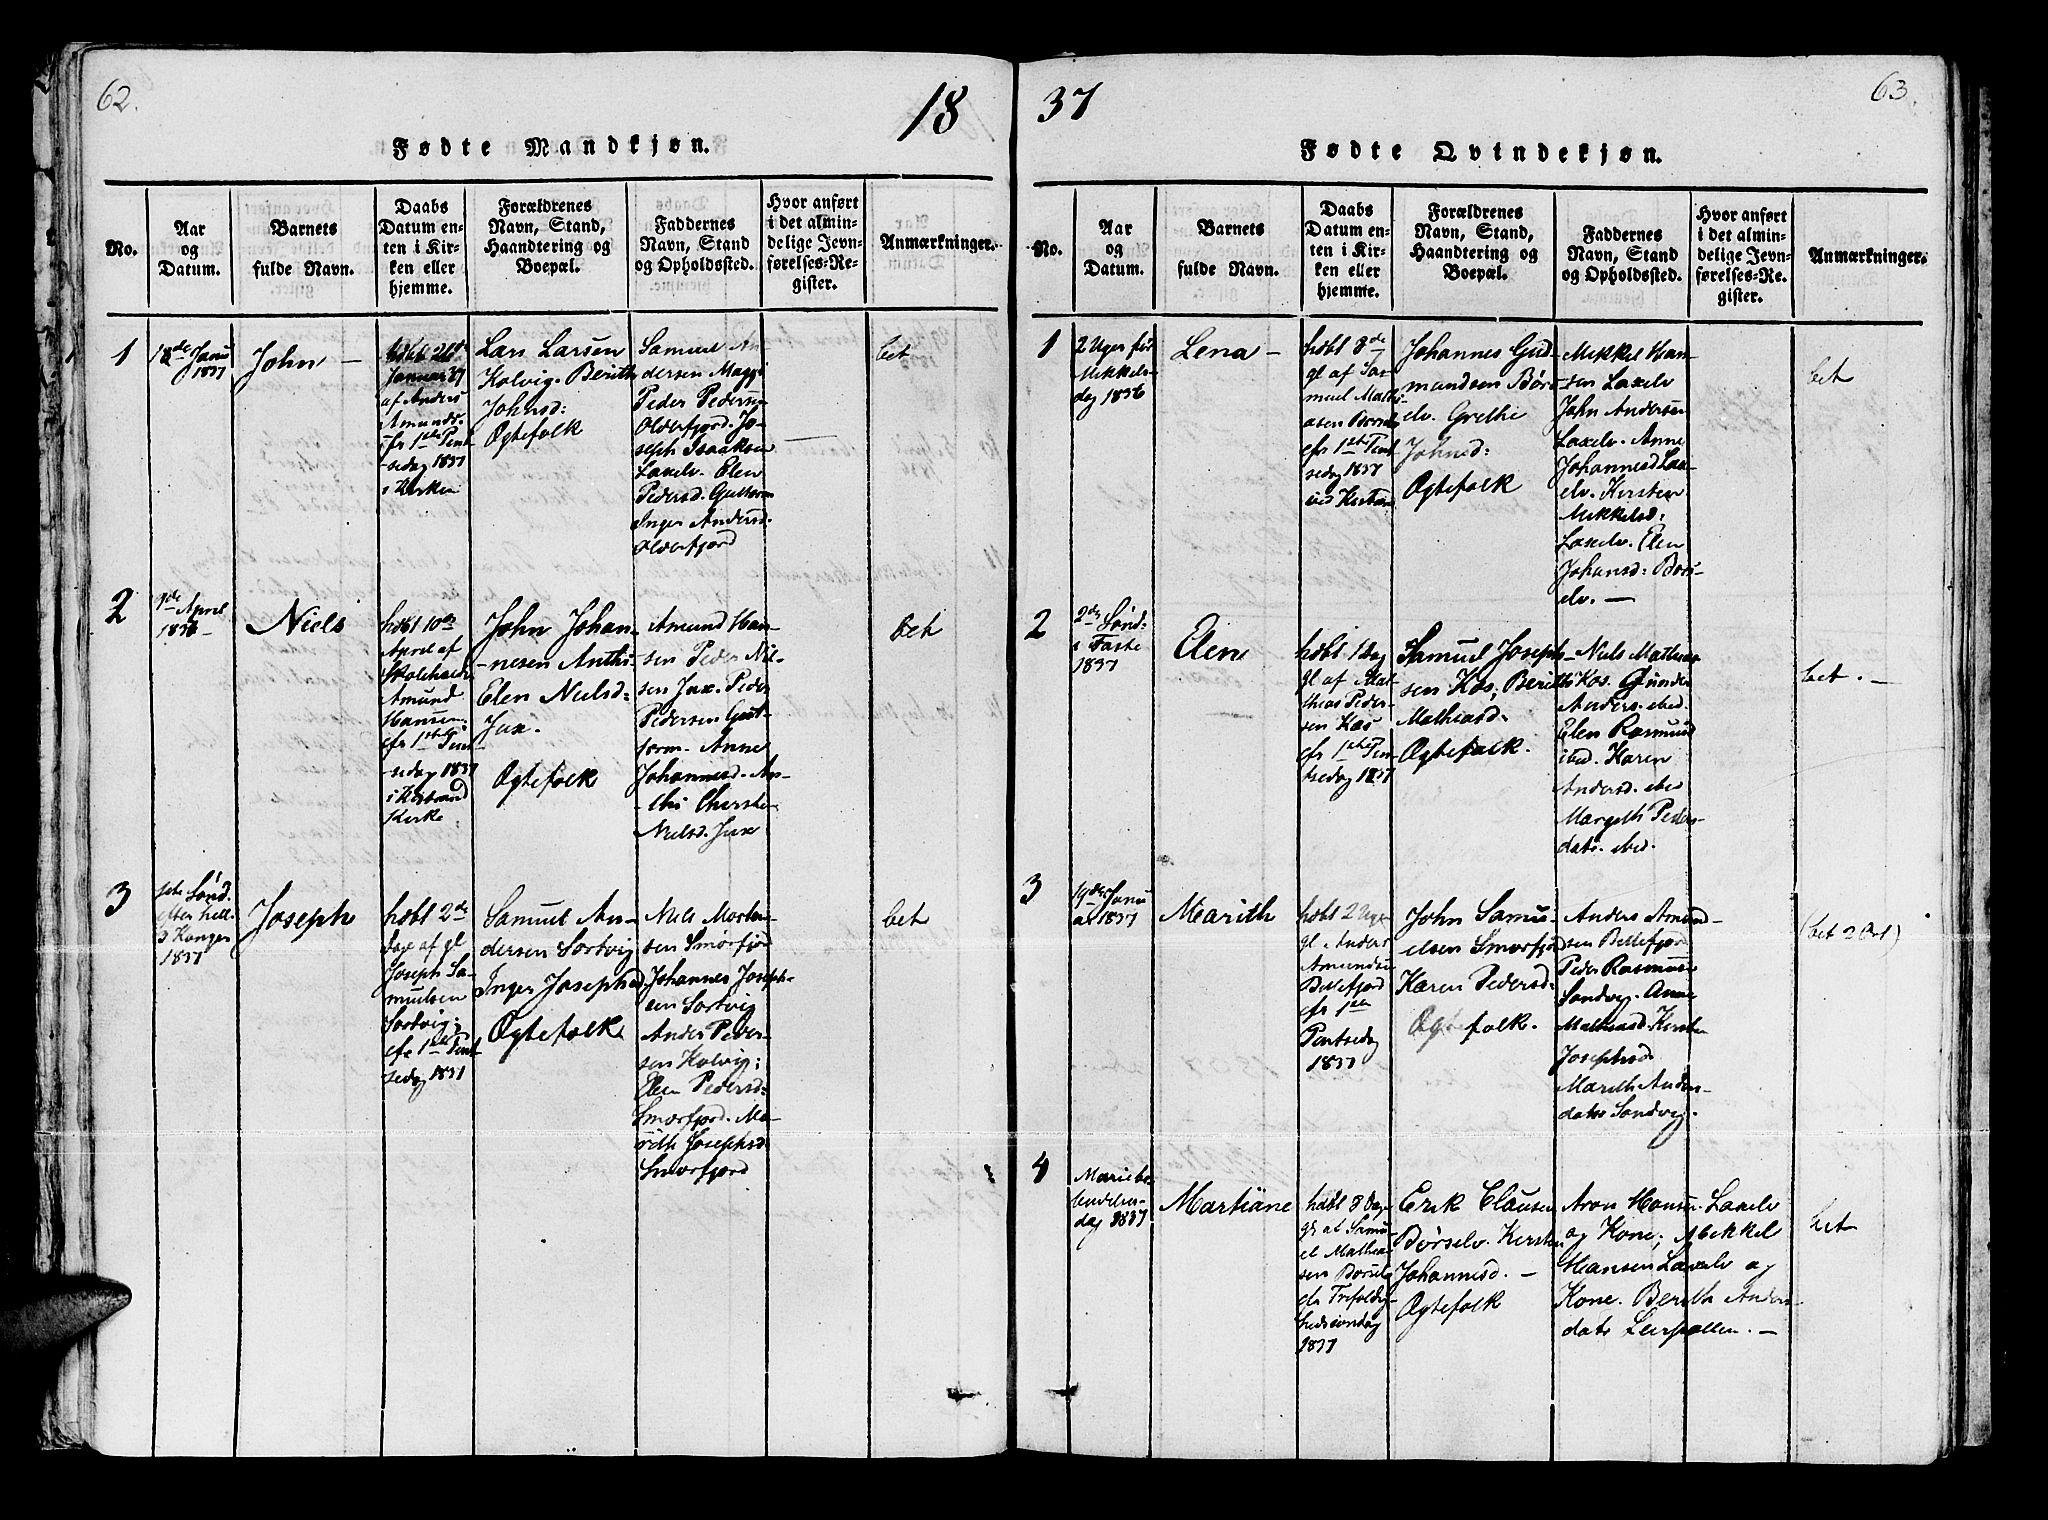 62.
18
Fødte Mandkjøn.
No.
Aar
og
Datum.
Barnets
fulde Navn.
Daabs
Datum en-
ten i Kir-
ken eller
hjemme.
Forældrenes
Navn, Stand,
Haandtering og
Boepæl.
Faddernes
Navn, Stand
og Opholdssted.
Hvor anført
i det almin-
delige Jevn-
førelses-Re-
gister.
Anmærkninger.
1
12de Janu
1837
John
Januar 37
af Anders
Amunds.
efr 1ste Pent
sedag 1837
i Kirken
Lars Larsen
Kolvig. Berith
Johnsd:
Ogtefolk
Samuel An
dersen
Peder Peders
Olderfjord. Jo-
seph Isaaksen
Laxelv. Elen
Pedersd.
Inger Andersd.
Olderfjord
bet
2
April
Niels
hdbt 10de
April af
Skoleh
Amund
Hansen
efr 1ste Pent
sedag 1837
i Kistrand
Kirke
John Johan-
nesen
Elen Nielsd:
Jax.
Ogtefolk
Amund Han-
sen Peder Nil-
sen Jax. Peder
Pedersen Gut-
torm. Anne
Johannesd.
Nielsd. Jax
bet
3
1ste Sønd.
efter hell.
3 Konger
1837
Joseph
hdbt 2de
dage af gl
Joseph Sa-
muelsen
Sortvig;
efr 1ste Pent
sedag 1837
Samuel An-
dersen Sortvig
Inger Josephsd
Ogtefolk
Niels Morten-
sen Smørfjord
Johannes Joseph-
sen Sortvig
Anders Peder-
sen Kolvig;
Elen Pedersd:
Smørfjord. Ma-
rith Josephsd
Smørfjord
bet
37
63.
Fødte Qvindekjøn.
No.
Aar
og
Datum.
Barnets
fulde Navn.
Daabs
Datum en-
ten i Kir-
ken eller
hjemme.
Forældrenes
Navn, Stand,
Haandtering og
Boepæl.
Faddernes
Navn, Stand
og Opholdssted.
Hvor anført
i det almin-
delige Jevn-
førelses-Re-
gister.
Anmærkninger.
1
2 Uger før
Mikkels-
dag 1836
Lena
hdbt 8de
gl af Sa-
muel Mathi-
asen Børselv
efr 1ste Pent
sedag 1837
ved Kistrand
Johannes Gud
mundsen Børs
elv. Grethe
Johnsd:
Ogtefolk
Mikkel Han-
sen Laxelv
John Andersen
Laxelv. Anne
Johannesd Lax-
elv. Kersten
Mikkelsd:
Laxelv. Elen
Johansd: Børs-
elv.
bet
2
2den Sønd:
i Faste
1837
Elen
hdbt 1 Dag
gl af Mat-
hias Peder-
sen Kos
efr 1ste Pen-
tsedag 1837
Samuel Joseph-
sen Kos; Berith
Mathiasd:
Ogtefolk.
Niels Mathias
Kos. Gunder
Anders. ibid.
Elen Rasmusd
ibid. Karen
Andersd. ibid
Margeth Peders-
datr. ibid.
bet.
3
19de Janu
ar 1837
Marith
hdbt 2 Uger
gl. Anders
Amundsen
Billefjord
efr 1ste
Pentsedag
1837
John Samu-
elsen Smørfjord
Karen Pedersd:
Ogtefolk.
Anders Amund-
sen Billefjord
Peder Rasmusen
Sandvig. Anne
Mathiasd. Kersten
Josephsd.
Marith Anders-
datr Sandvig.
(bet 2 Ort)
4
Mariebe-
budelses-
dag 1837
Martiane
hdbt 8 Dage
gl. af Samu-
el Mathia-
sen Børselv
dr Trefoldig-
hedssøndag
1837
Erik Clausen
Børselv. Kersten
Johannesd.
Ogtefolk
Aron Hansen Laxelv
og Kone; Mikkel
Hansen Laxelv og
Kone. Berith Anders-
datr Leirpollen.
bet